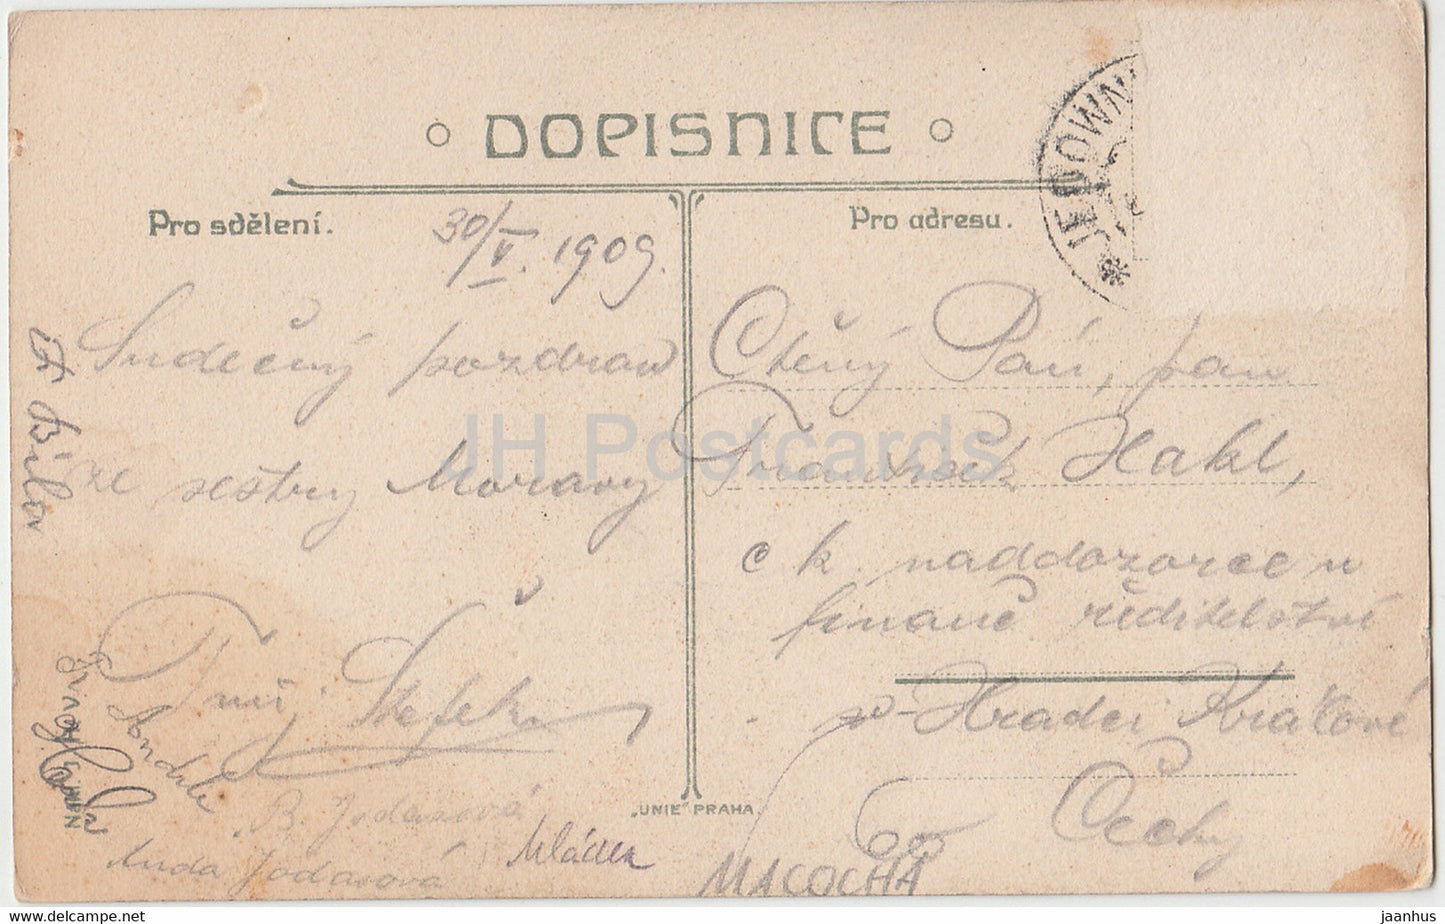 DOPISNICE
Pro sdělení.
Pro adresu.
JEDOWN
30/V. 1909.
Srdečný pozdrav
ze sestry Moravy
Tvůj Štefek
B. Jodasová
Anda Jodasová
Mládek
Ctěný Pán, pan
František Hakl,
c k. naddozorce u
finanč ředitelství
v Hradci Králové
Čechy
60
MACOCHA
„UNIE" PRAHA
JH Postcards
www.delcampe.net
jaanhus